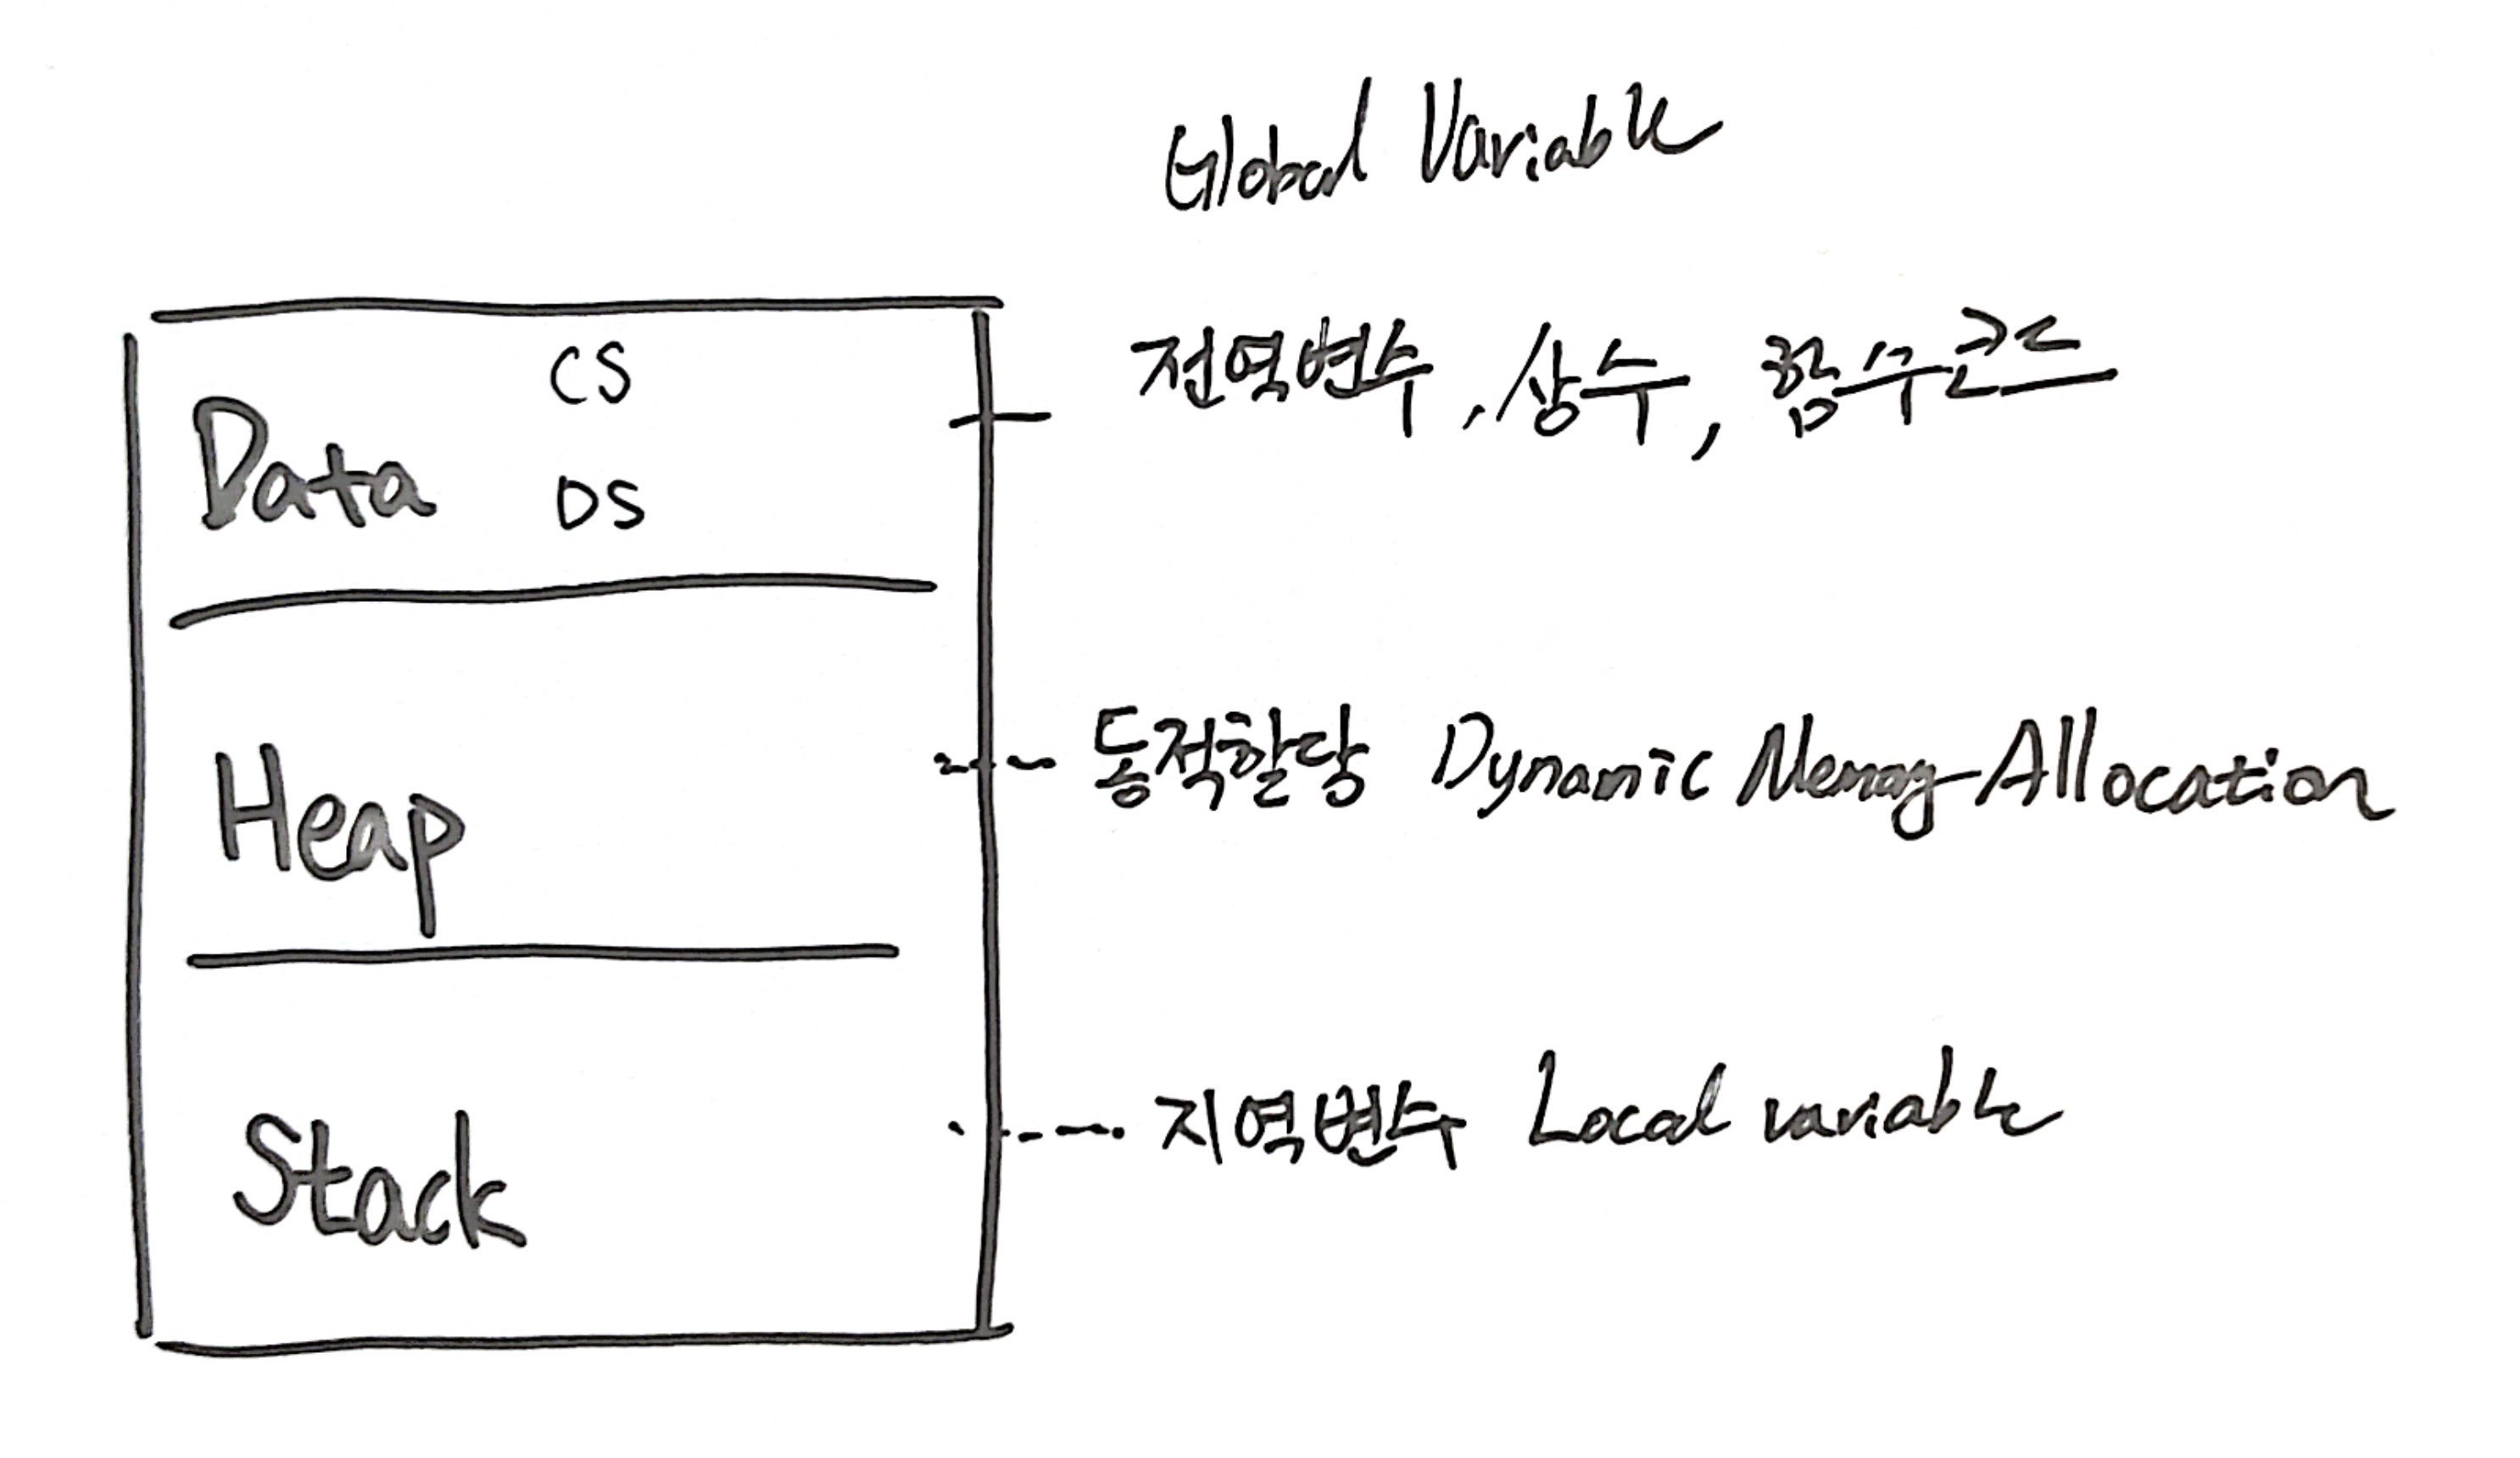 Global Variable
CS
전역변수, 상수, 함수코드
Data
DS
동적할당 Dynamic Memory Allocation
Heap
지역변수 Local variable
Stack